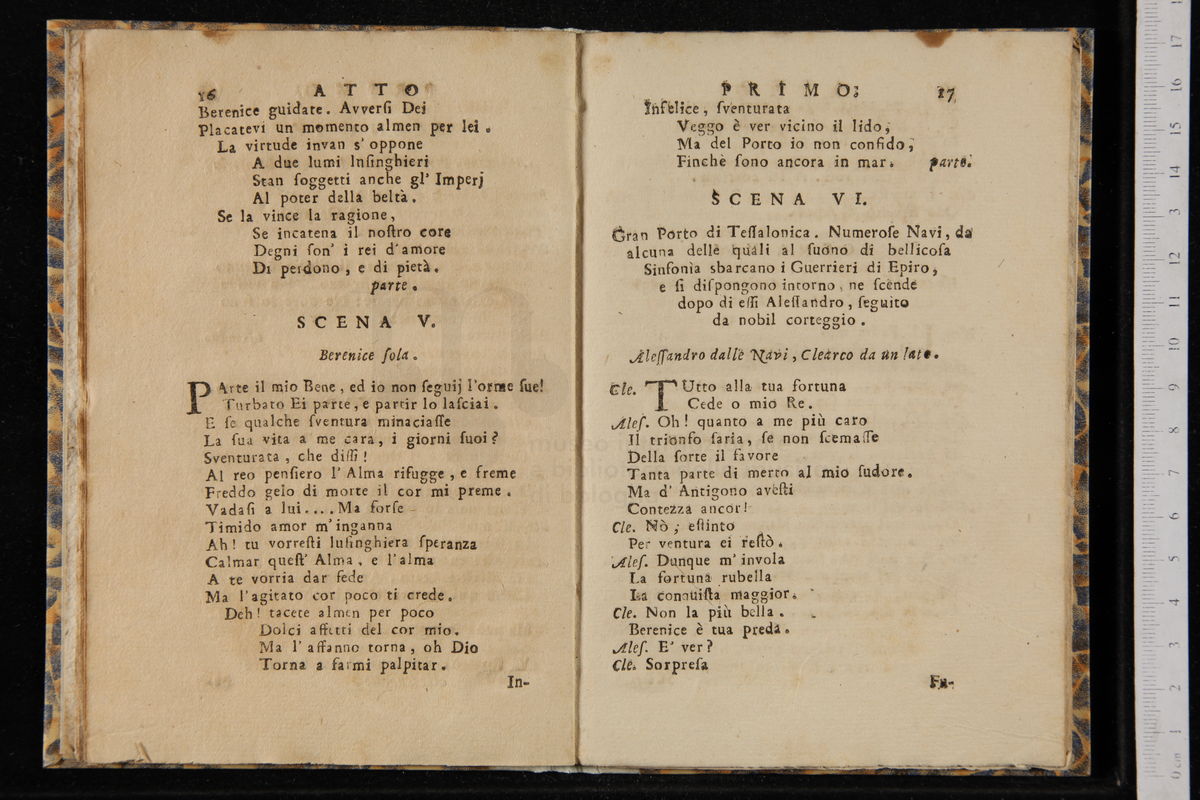 16 ATTO
Berenice guidate. Avverſi Dei
Placatevi un momento almen per lei.
La virtude invan s' oppone
A due lumi lnſinghieri
Stan ſoggetti anche gl' Imperj
Al poter della beltà.
Se la vince la ragione,
Se incatena il noſtro core
Degni ſon' i rei d'amore
Di perdono, e di pietà.
parte.
SCENA V.
Berenice ſola.
PArte il mio Bene, ed io non ſeguij l'orme ſue!
Turbato Ei parte, e partir lo laſciai.
E ſe qualche ſventura minaciaſſe
La ſua vita a me cara, i giorni ſuoi?
Sventurata, che diſſi!
Al reo penſiero l' Alma rifugge, e freme
Freddo gelo di morte il cor mi preme.
Vadaſi a lui.... Ma forſe
Timido amor m'inganna
Ah! tu vorreſti luſinghiera ſperanza
Calmar queſt' Alma, e l'alma
A te vorria dar fede
Ma l'agitato cor poco ti crede.
Deh! tacete almen per poco
Dolci affetti del cor mio.
Ma l' affanno torna, oh Dio
Torna a farmi palpitar.
In-
PRIMO; 17
Infelice, ſventurata
Veggo è ver vicino il lido,
Ma del Porto io non confido,
Finchè ſono ancora in mar. parte.
SCENA VI.
Gran Porto di Teſſalonica. Numeroſe Navi, da
alcuna delle quali al ſuono di bellicoſa
Sinfonia sbarcano i Guerrieri di Epiro,
e ſi diſpongono intorno, ne ſcende
dopo di eſſi Aleſſandro, ſeguito
da nobil corteggio.
Aleſſandro dalle Navi, Clearco da un lato.
Cle. TUtto alla tua fortuna
Cede o mio Re.
Aleſ. Oh! quanto a me più caro
Il trionfo ſaria, ſe non ſcemaſſe
Della ſorte il favore
Tanta parte di merto al mio ſudore.
Ma d' Antigono aveſti
Contezza ancor!
Cle. Nò, eſtinto
Per ventura ei reſtò.
Aleſ. Dunque m' invola
La fortuna rubella
La conquiſta maggior.
Cle. Non la più bella.
Berenice è tua preda.
Aleſ. E' ver?
Cle. Sorpreſa
Fu-